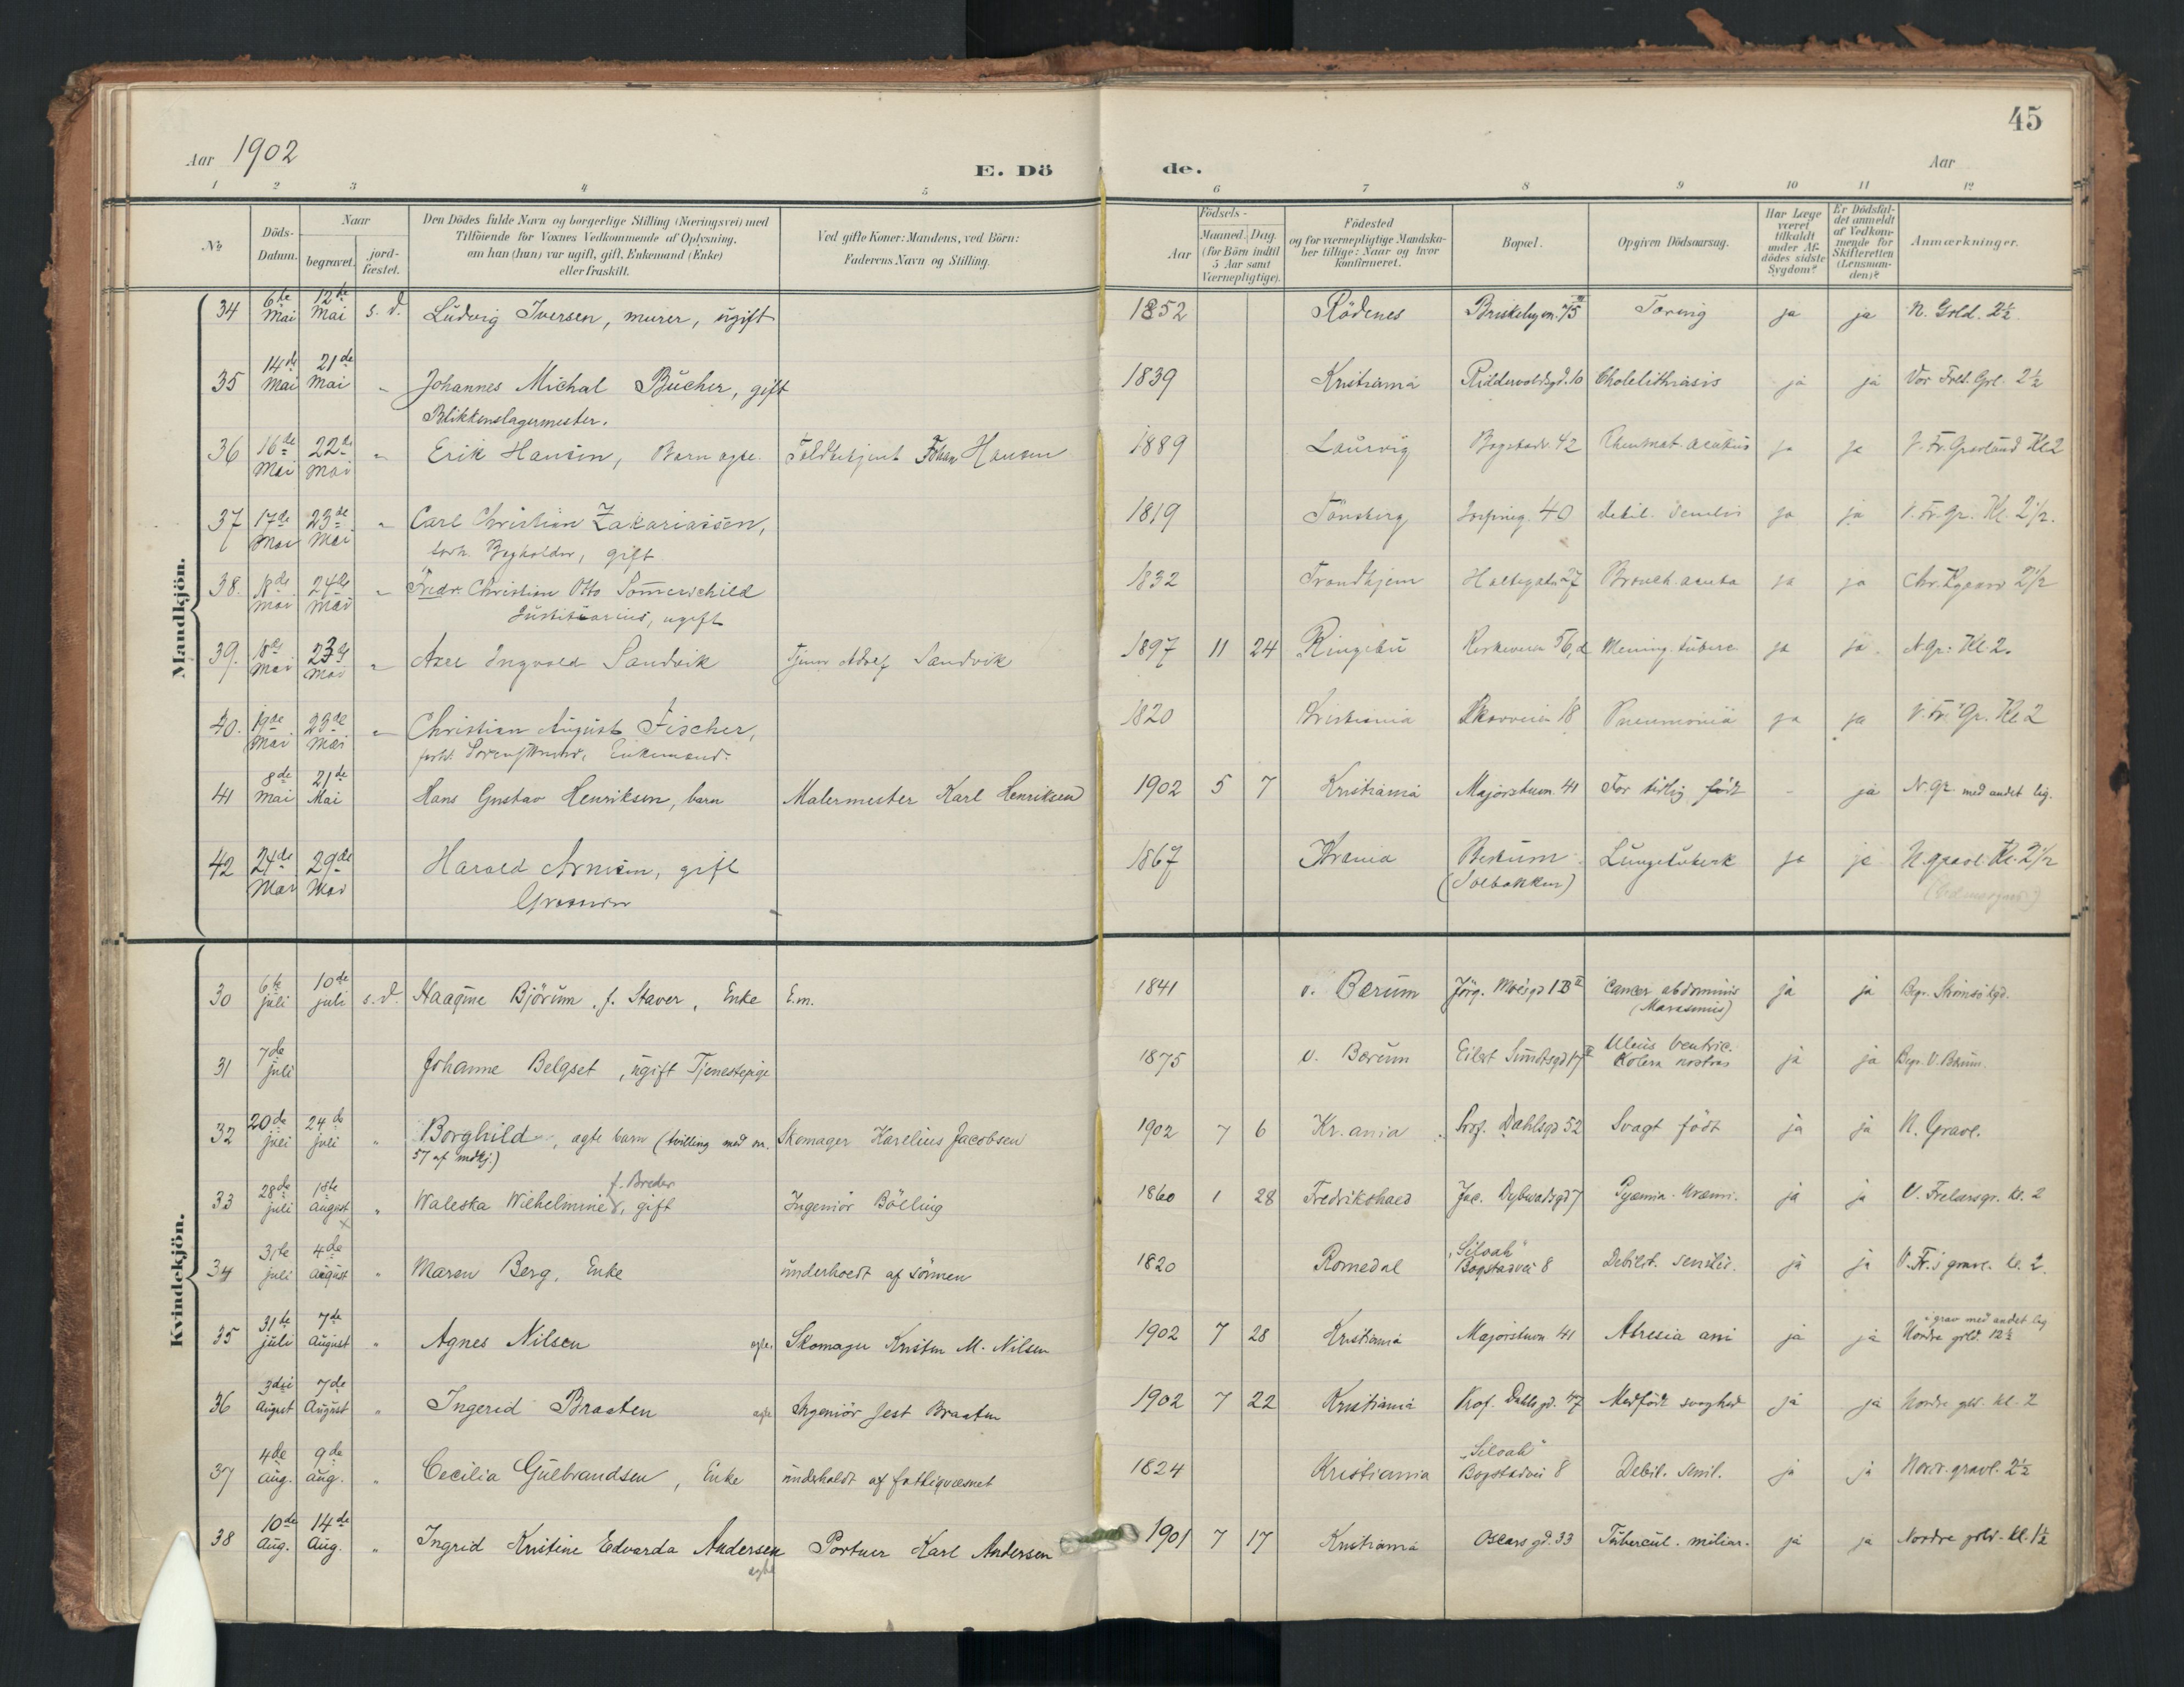 45
Aar 1902
E. Dö de.
Aar
1 2 3 4 5 6 7 8 9 10 11 12
№ Döds-Datum. Naar begravet. jord-fæstet. Den Dödes fulde Navn og borgerlige Stilling (Næringsvei) med Tilföiende for Voxnes Vedkommende af Oplysning, om han (hun) var ugift, gift, Enkemand (Enke) eller fraskilt. Ved gifte Koner: Mandens, ved Börn: Faderens Navn og Stilling. Födsels- Aar Maaned. Dag. (for Börn indtil 5 Aar samt Værnepligtige). Födested og for værnepligtige Mandskaber tillige: Naar og hvor konfirmeret. Bopæl. Opgiven Dödsaarsag. Har Læge været tilkaldt under Afdödes sidste Sygdom? Er Dödsfaldet anmeldt af Vedkommende for Skifteretten (Lensmanden)? Anmærkninger.
Mandkjön.
34 6te Mai 12te Mai s. d. Ludvig Iversen, murer, ugift 1852 Rödenes Tæring ja ja N. Grld. 2½.
35 14de Mai 21de Mai " Johannes Michal Bücher, gift 1839 Kristiania Riddervoldsgd. 10 Cholelithiasis ja ja Vor Frels. Grl. 2½
Blikkenslagermester.
36 16de Mai 22de Mai " Erik Hansen, Barn ægte. Johan Hansen 1889 Laurvig Bogstadv. 42 Rheumat. acutus ja ja V. Fr. Gravlund Kl 2
37 17de Mai 23de Mai " Carl Christian Zakariassen, 1819 Tönsberg 40 Debil. senilis ja ja V. Fr. Gr. Kl. 2½.
forh. Bogholder, gift
38. 18de Mai 24de Mai " Fredr. Christian Otto Sömmerschield 1832 Trondhjem Holtegaten 27 Bronch. acuta ja ja 2½
Justitiarius, ugift
39. 18de Mai 23de Mai " Axel Ingvald Sandvik Adolf Sandvik 1897 11 24 Ringebu Kirkeveien 56, d Mening. tuberc. ja ja. N. Gr. Kl. 2.
40. 19de Mai 23de Mai " Christian August Fischer, 1820 Kristiania 18 Pneumonia ja ja V. Fr. Gr. Kl 2
forh. Enkemand.
41 8de Mai 21de Mai Hans Gustav Henriksen, barn Malermester Karl Henriksen 1902 5 7 Kristiania Majorstuvn. 41 For tidlig födt - ja N. Gr. med andet lig.
42 24de Mai 29de Mai Harald Arnesen, gift 1867 Krania Bærum Lungetuberk ja ja N. gravl. Kl. 2½
Grosserer (Solbakken)
Kvindekjön.
30 6te juli 10de juli s. d. Haagine Björum, f. Staver, Enke E.m. 1841 v. Bærum Jörg. Moesgd 1B II Cancer abdominis ja ja
(Marasmus)
31 7de juli Johanne Belgset, ugift Tjenestepige 1875 V. Bærum Eilert Sundtsgd 17 II Ulcus ventric. ja ja Begr. V. Bærum.
Kolera nostras
32 20de juli 24de juli " Borghild, ægte barn (tvilling med nr. Skomager Karelius Jacobsen 1902 7 6 Kr.ania Prof. Dahlsgd 52 Svagt födt ja ja N. Gravl.
57 af mdkj.)
f. Breder
33 28de juli 1ste August " Waleska Wilhelmine, gift Ingeniör Bölling 1860 1 28 Fredrikshald Jac. Dybwadsgd 7 Pyæmia. Uræmi. ja ja V. Frelsersgr. kl. 2
34 31te juli 4de August " Maren Berg, Enke underholdt af sönnen 1820 Romedal "Siloah" Bogstadvei 8 Debilit. senilis. ja ja V. Fr.s gravl. kl. 2.
35 31te juli 7de August " Agnes Nilsen ægte Skomager Kristen M. Nilsen 1902 7 28 Kristiania Majorstuvn 41 Atresia ani ja ja i grav med andet lig Nordre grld. 12½
36 3die August 7de August " Ingerid Braaten ægte Ingeniör Jest Braaten 1902 7 22 Kristiania Prof. Dahls gd. 47 Medfödt svaghed ja ja Nordre grld. kl. 2
37 4de Aug. 9de Aug. " Cecilia Gulbrandsen, Enke underholdt af fattigvæsnet 1824 Kristiania "Siloah" Bogstadvei 8 Debil. senil. ja ja Nordr. gravl. 2½
38 10de Aug. 14de Aug. " Ingrid Kristine Edvarda Andersen ægte Portner Karl Andersen 1901 7 17 Kristiania Oscars gd. 33 Tubercul. miliar. ja ja Nordre grld. kl. 1½